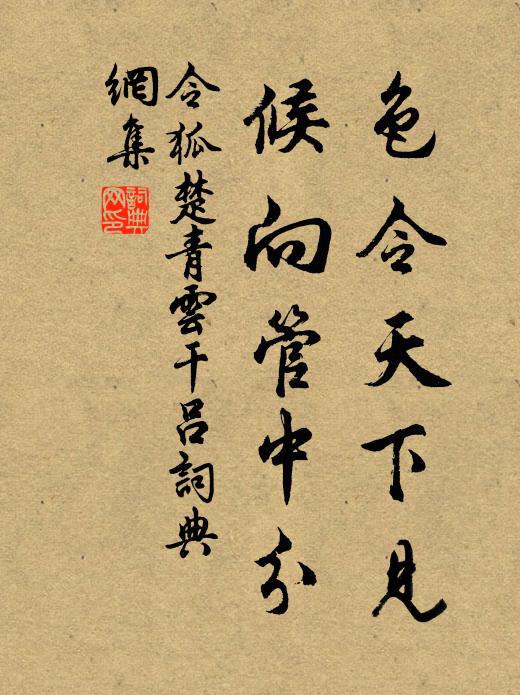 色令天下見
候向管中分
令狐楚青雲干呂詞典
網集
詞典
网印